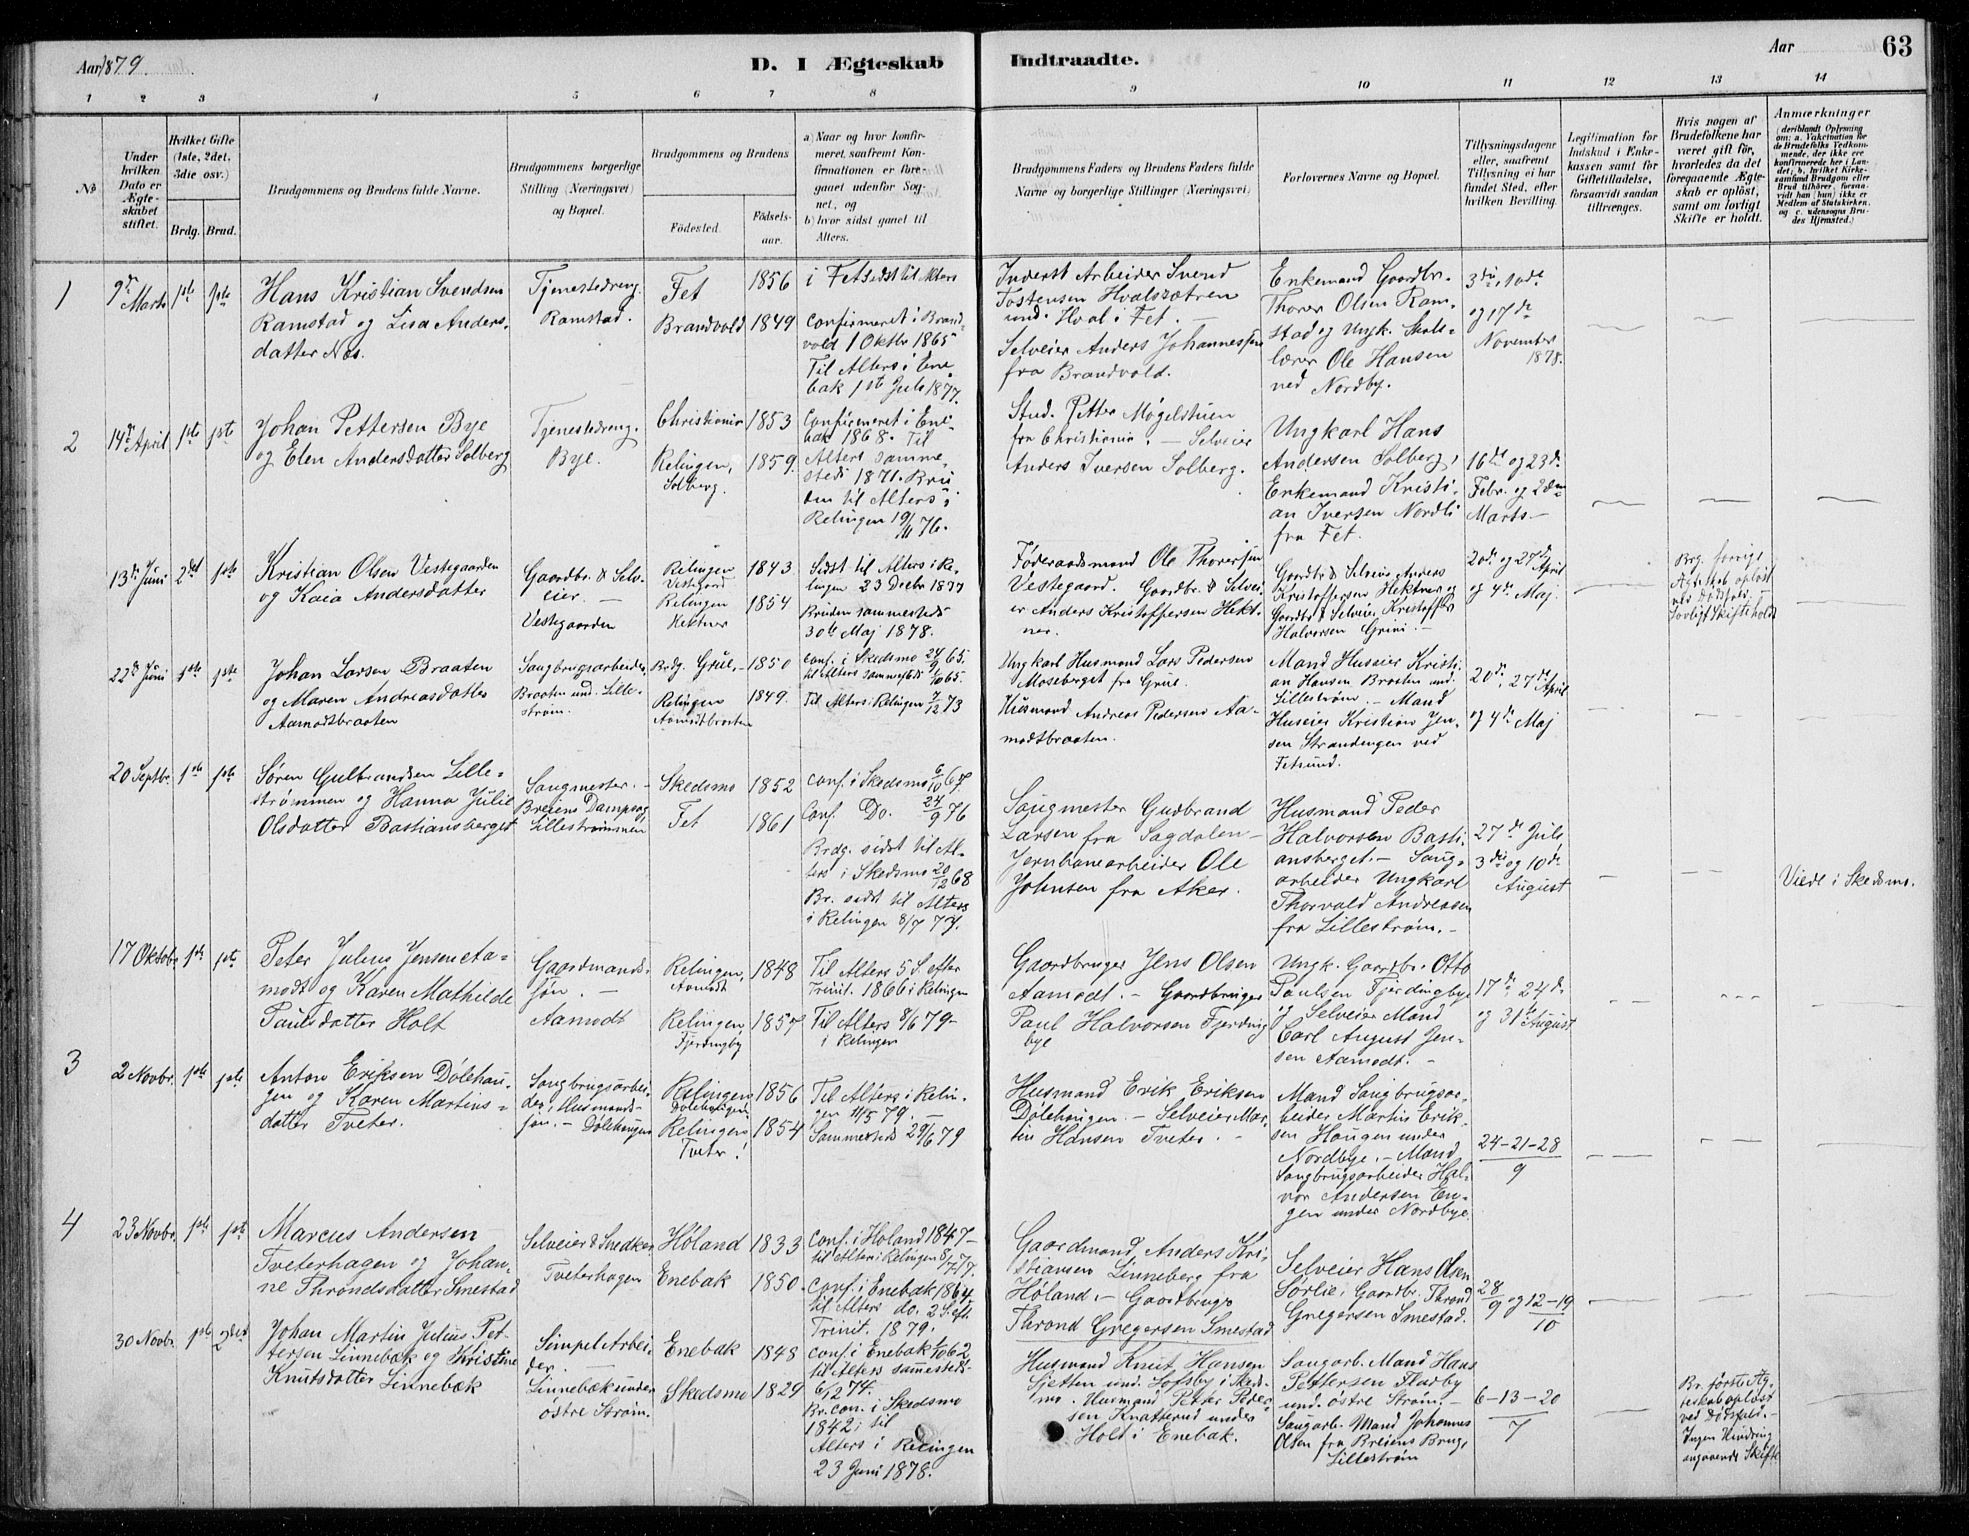 Aar 1879.
D. I Ægteskab Indtraadte.
Aar
63
1 2 3 4 5 6 7 8 9 10 11 12 13 14
No
Under hvilken Dato er Ægteskabet stiftet.
Hvilket Gifte (1ste, 2det, 3die osv.)
Brdg. Brud.
Brudgommens og Brudens fulde Navne.
Brudgommens borgerlige Stilling (Næringsvei) og Bopæl.
Brudgommens og Brudens
Fødested.
Fødselsaar.
a) Naar og hvor konfirmeret, saafremt Konfirmationen er foregaaet udenfor Sognet, og
b) hvor sidst gaaet til Alters.
Brudgommens Faders og Brudens Faders fulde Navne og borgerlige Stillinger (Næringsvei).
Forlovernes Navne og Bopæl.
Tillysningsdagene eller, saafremt Tillysning ei har fundet Sted, efter hvilken Bevilling.
Legitimation for Indskud i Enkekassen samt for Giftetilladelse, forsaavidt saadan tiltrænges.
Hvis nogen af Brudefolkene har været gift før, hvorledes da det foregaaende Ægteskab er opløst, samt om lovligt Skifte er holdt.
Anmærkninger
(deriblandt Oplysning om: a. Vakcination for de Brudefolks Vedkommende, der ikke ere konfirmerede her i Landet; b. hvilket Kirkesamfund Brudgom eller Brud tilhører, forsaavidt han (hun) ikke er Medlem af Statskirken, og c. udensogns Brudes Hjemsted.)
1
9de Marts
1ste 1ste
Hans Kristian Svendsen
Ramstad og Lisa Anders-
datter Nes.
Tjenestedreng.
Ramstad.
Fet 1856
Brandvold 1849
i Fet sidst til Alters
Confirmeret i Brand-
vold 1 Oktbr 1865
Til Alters i Ene-
bak 1st Juli 1877.
Inderst Arbeider Svend
Tostensen Hvalssætren
und. Hval i Fet.
Selveier Anders Johannessen
fra Brandvold.
Enkemand Gaardbr.
Thorer Olsen Ram-
stad og Ungk. Skole-
lærer Ole Hansen
ved Nordby.
3die, 10de
og 17de
November
1878.
2
14de April
1ste 1ste
Johan Pettersen Bye
og Elen Andersdatter Solberg
Tjenestedreng.
Bye.
Christiania 1853
Relingen, 1859.
Solberg.
Confirmeret i Ene-
bak 1868. Til
Alters samme-
steds 1871. Bru-
den til Alters i
Relingen 19/11 76.
Stud. Petter Møgelstuen
fra Christiania. – Selveier
Anders Iversen Solberg.
Ungkarl Hans
Andersen Solberg,
Enkemand Kristi-
an Iversen Nordli
fra Fet.
16de og 23de
Febr. og 2den
Marts –
13de Juni
2det 1ste
Kristian Olsen Vestegaarden
og Kaia Andersdatter
Gaardbr. & Selv-
eier. –
Vestegaarden
Relingen 1843
Vestegaard
Relingen 1854
Hektner
Sidst til Alters i Re-
lingen 23 Decbr 1877
Bruden sammesteds
30te Maj 1878.
Føderaadsmand Ole Thoversen
Vestegaard. Gaardbr. & Selvei-
er Anders Kristoffersen Hekt-
ner.
Gaardbr & Selveier Anders
Kristoffersen Hektner og
Gaardbr & Selveier Kristoffer
Halvorsen Grini. –
20de og 27de April
og 4de Maj.
Brg. forrige
Ægteskab opløst
ved Dødsfald. –
Lovligt Skifte holdt
22de Juni
1ste 1ste
Johan Larsen Braaten
og Maren Andreasdatter
Aamodtbraaten
Saugbrugsarbeider,
Braaten und. Lille-
strøm.
Brdg. Grue. 1850
Relingen 1849.
Aamodtbraaten
Conf. i Skedsmo 24/9 65.
til Alters sammesteds /10 65.
Til Alters i Relingen 7/12 73
Ungkarl Husmand Lars Pedersen
Moseberget fra Grue.
Husmand Andreas Pedersen Aa-
modtbraaten.
Mand Huseier Kristi-
an Hansen Braaten und.
Lillestrøm. – Mand
Huseier Kristian Jen-
sen Strandengen ved
Fetsund.
20de, 27de April
og 4de Maj
20 Septbr.
1ste 1ste
Søren Gulbrandsen Lille-
strømmen og Hanna Julie
Olsdatter Bastiansberget
Saugmester. –
Breiens Dampsag
Lillestrømmen
Skedsmo 1852
Fet 1861
Conf. i Skedsmo 6/10 67
Conf. Do. 24/9 76
Brdg. sidst til Al-
ters i Skedsmo 20/12 68
Br. sidst til Alters
i Relingen 8/7 77.
Saugmester Gudbrand
Larsen fra Sagdalen –
Jernbanearbeider Ole
Johnsen fra Aker.
Husmand Peder
Halvorsen Basti-
ansberget. – Saug-
arbeider Ungkarl
Thorvald Andreasen
fra Lillestrøm. –
27de Juli
3die og 10de
August
Viede i Skedsmo.
17 Oktobr.
1ste 1ste
Peter Julius Jensen Aa-
modt og Karen Mathilde
Paulsdatter Holt
Gaardmands-
søn. –
Aamodt
Relingen, 1848
Aamodt
Relingen 1857
Fjerdingby
Til Alters 5 S. efter
Trinit. 1866 i Relingen
Til Alters 8/6 79 –
i Relingen
Gaardbruger Jens Olsen
Aamodt. – Gaardbruger
Paul Halvorsen Fjerding-
bye
Ungk. Gaardbr. Otto
Paulsen Fjerdingbye
og Selveier Mand
Carl August Jen-
sen Aamodt. –
17de, 24de
og 31te August
3
2 Novbr.
1ste 1ste
Anton Eriksen Dølehau-
gen og Karen Martins-
datter Tveter.
Saugbrugsarbei-
der, Husmands-
søn. – Dølehaugen
Relingen 1856
Dølehaugen
Relingen 1854
Tveter.
Til Alters i Relin-
gen 11/5 79. –
Sammesteds 29/6 79
Husmand Erik Eriksen
Dølehaugen. – Selveier Mar-
tin Hansen Tveter. –
Mand Saugbrugsar-
beider Martin Erik-
sen Haugen under
Nordbye. – Mand
Saugbrugsarbeider Hal-
vor Andersen En-
gen under Nordbye.
24-21-28
9
4
23 Novbr.
1ste 1ste
Marcus Andersen
Tveterhagen og Johan-
ne Throndsdatter Smestad
Selveier & Snedker
Tveterhagen
Høland 1833
Enebak 1850.
Conf. i Høland 1847 –
til Alters i Relingen 8/7 77.
Conf. i Enebak 1864.
til Alters do. 2 S. eft.
Trinit. 1879.
Gaardmand Anders Kri-
stiansen Linneberg fra
Høland. – Gaardbruger
Thrond Gregersen Smestad
Selveier Hans Olsen
Sørlie, Gaardbr. Thrond
Gregersen Smestad.
28/9 og 12-19/10
30 Novbr.
1ste 2det
Johan Martin Julius Pet-
tersen Linnebæk og Kristine
Knutsdatter Linnebæk
Simpel Arbei-
der. –
Linnebæk under
østre Strøm.
Enebak 1848
Skedsmo 1829
Conf. i Enebak /10 62
til Alters sammesteds
6/12 74.
Br. con. i Skedsmo
1842; til
Alters i Relingen
23 Juni 1878.
Husmand Knut Hansen
Sjetten und. Lofsby i Skeds-
mo. Husmand Petter Peder-
sen Knatterud under
Holt i Enebak.
Saugarb. Mand Hans
Pettersen Fladby
und. østre Strøm. –
Saugarb. Mand Johannes
Olsen fra Breiens Brug,
Lillestrøm
6-13-20
7
Br. første Æg-
teskab opløst
ved Dødsfald. –
Ingen Hindring
angaaende Skifte